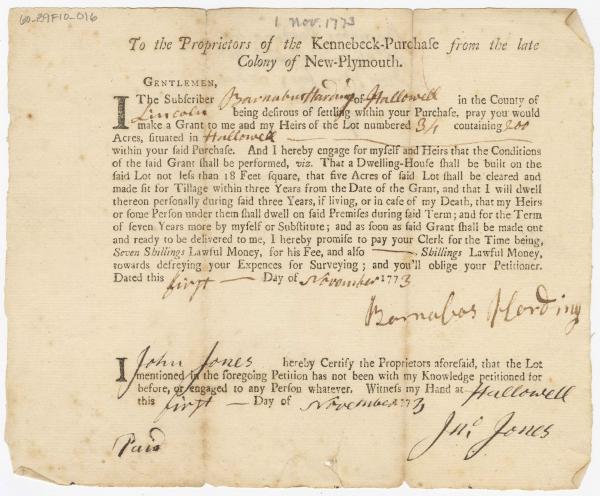 60-29F10-016
1 Nov. 1773
To the Proprietors of the Kennebeck-Purchase from the late
Colony of New-Plymouth.
GENTLEMEN,
I The Subscriber Barnabas Harding of Hallowell in the County of
Lincoln being desirous of settling within your Purchase, pray you would
make a Grant to me and my Heirs of the Lot numbered 31 containing 200
Acres, situated in Hallowell
within your said Purchase. And I hereby engage for myself and Heirs that the Conditions
of the said Grant shall be performed, viz. That a Dwelling-House shall be built on the
said Lot not less than 18 Feet square, that five Acres of said Lot shall be cleared and
made fit for Tillage within three Years from the Date of the Grant, and that I will dwell
thereon personally during said three Years, if living, or in case of my Death, that my Heirs
or some Person under them shall dwell on said Premises during said Term; and for the Term
of seven Years more by myself or Substitute; and as soon as said Grant shall be made out
and ready to be delivered to me, I hereby promise to pay your Clerk for the Time being,
Seven Shillings Lawful Money, for his Fee, and also — Shillings Lawful Money,
towards defreying your Expences for Surveying; and you'll oblige your Petitioner.
Dated this first — Day of November 1773
Barnabas Harding
I John Jones hereby Certify the Proprietors aforesaid, that the Lot
mentioned in the foregoing Petition has not been with my Knowledge petitioned for
before, or engaged to any Person whatever. Witness my Hand at Hallowell
this first — Day of November 1773
Jno Jones
Paid